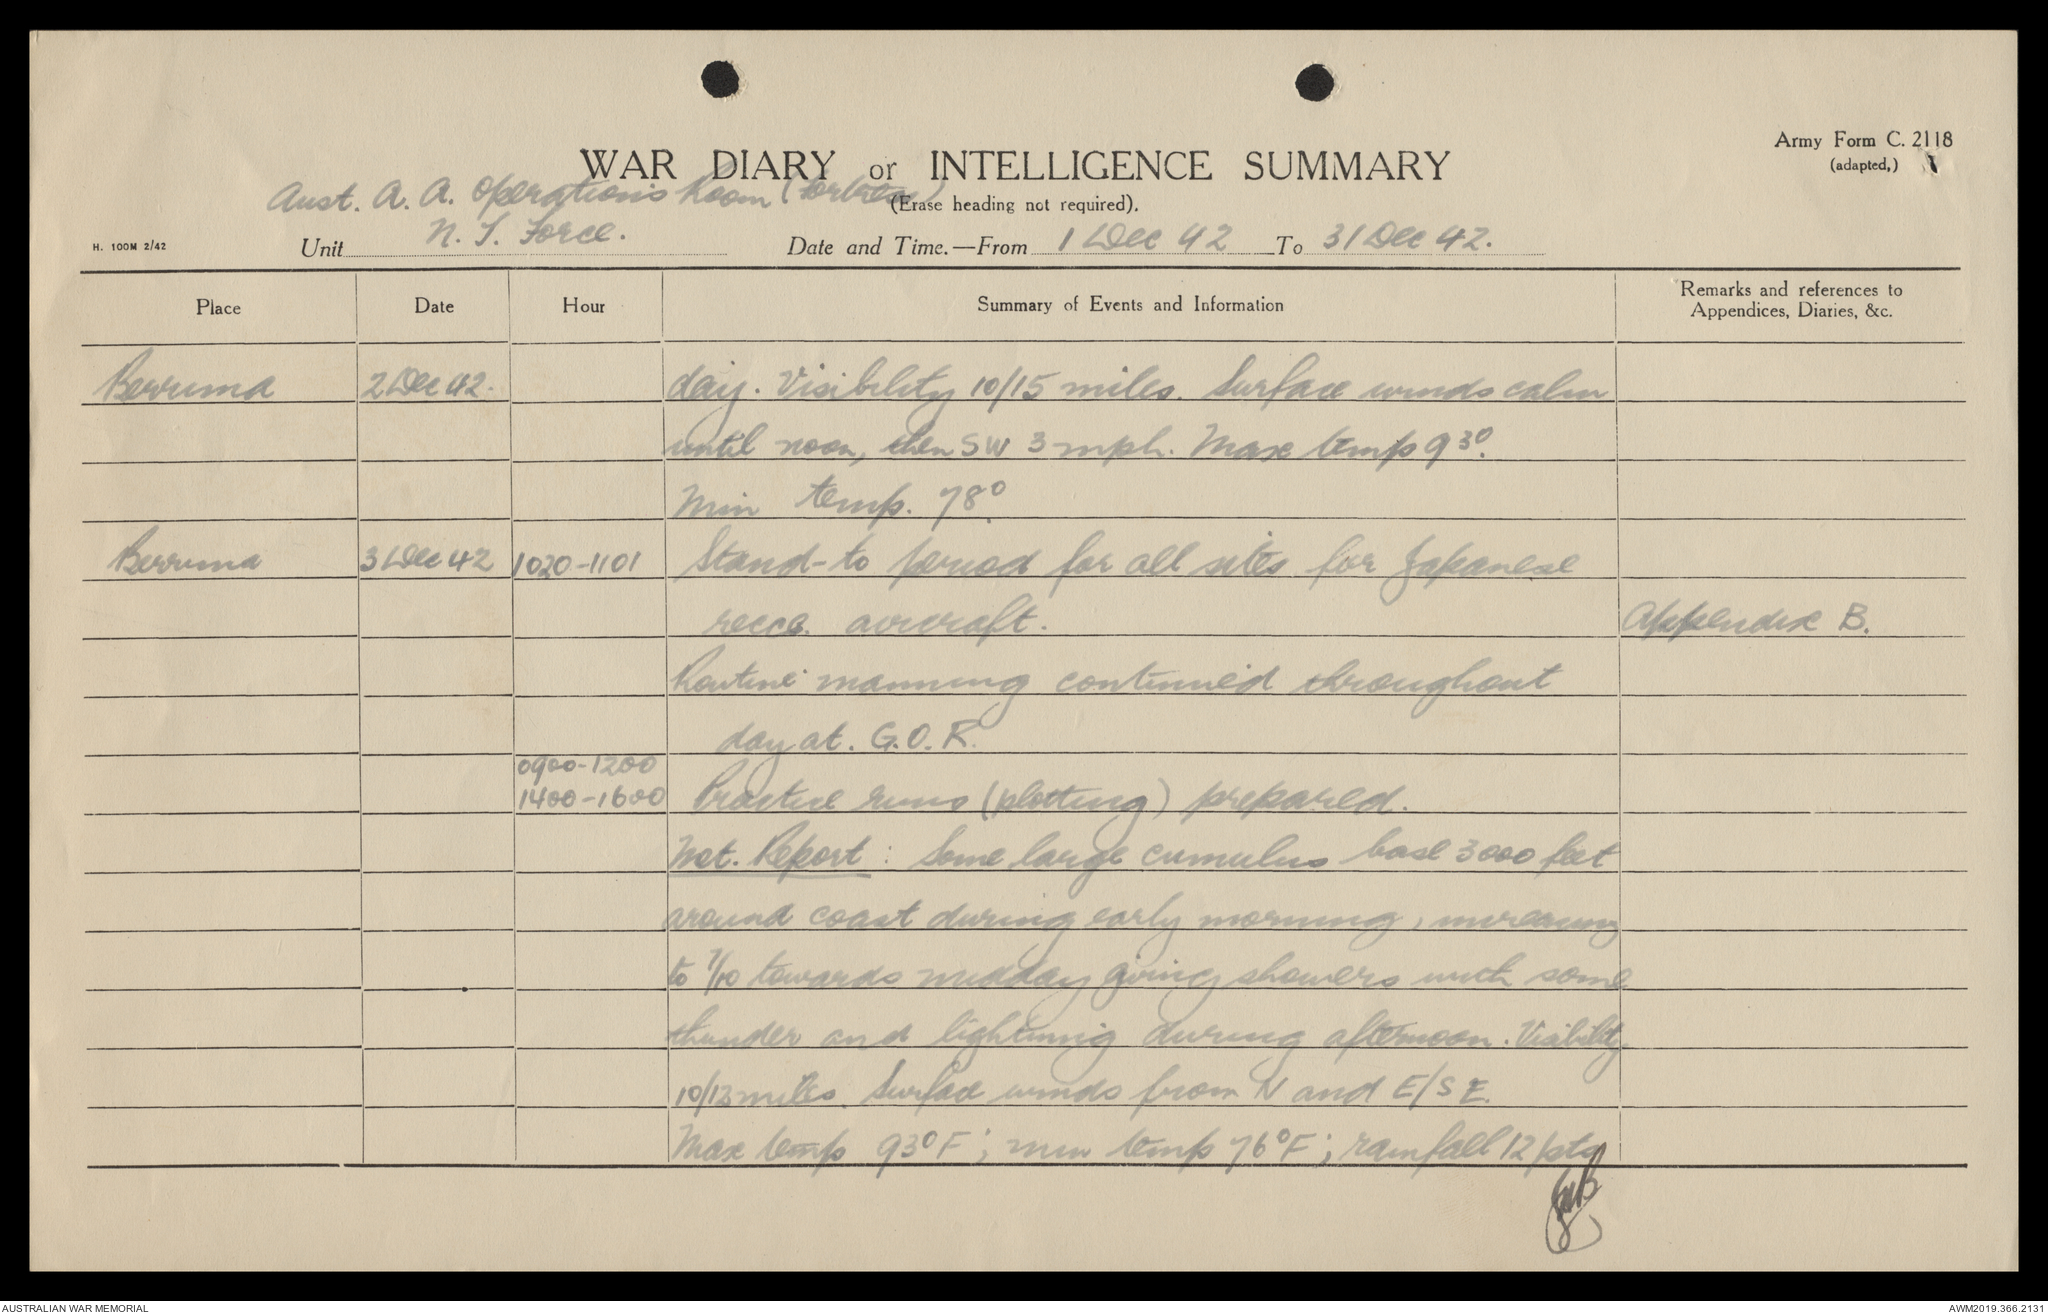 Army Form C. 2118
(adapted,)
WAR DIARY or INTELLIGENCE SUMMARY
(Erase heading not required).
Aust. A. A. Operations Room
N. T. Force.
H. 100M 2/42
Unit
Date and Time.—From 1 Dec 42 To 31 Dec 42.
Place Date Hour Summary of Events and Information Remarks and references to
Appendices, Diaries, &c.
Berrima 2 Dec 42. day. Visibility 10/15 miles. Surface winds calm
until noon, then SW 3 mph. Max temp 93°.
Min temp. 78°
Berrima 3 Dec 42 1020-1101 Stand-to period for all sites for Japanese
recce. aircraft. Appendix B.
Routine manning continued throughout
day at. G.O.R.
0900-1200
1400-1600 Practice runs (plotting) prepared.
Met. Report: Some large cumulus base 3000 feet
around coast during early morning, increasing
to 7/10 towards midday giving showers with some
thunder and lightning during afternoon. Visibility
10/12 miles. Surface winds from N and E/SE.
Max temp 93°F; min temp 76°F; rainfall 12 pts
AUSTRALIAN WAR MEMORIAL
AWM2019.366.2131